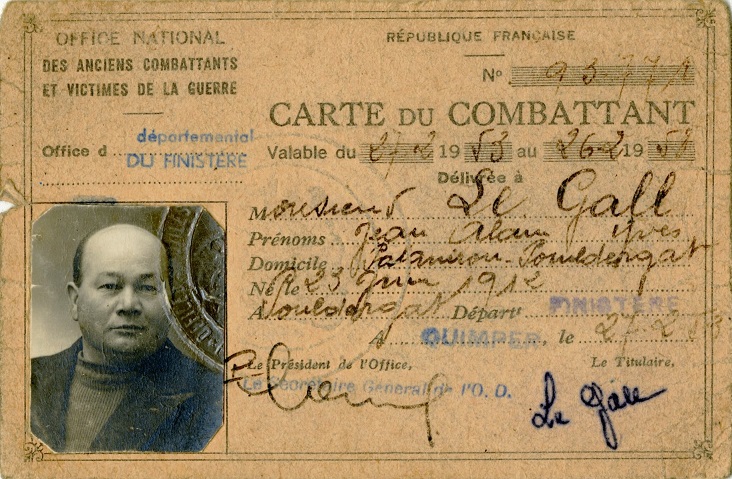 OFFICE NATIONAL
DES ANCIENS COMBATTANTS
ET VICTIMES DE LA GUERRE
Office d départemental
DU FINISTÈRE
RÉPUBLIQUE FRANÇAISE
No 93771
CARTE DU COMBATTANT
Valable du 27-2 1953 au 26-2 1958
Délivrée à
Monsieur Le Gall
Prénoms Jean Alain Yves
Domicile Pouldergat
Né le 23 Juin 1912
A Pouldergat Départt FINISTÈRE
A QUIMPER, le 27-2 53
Le Président de l'Office,
Le Titulaire,
Le Secrétaire Général de l'O. D.
Le Gall